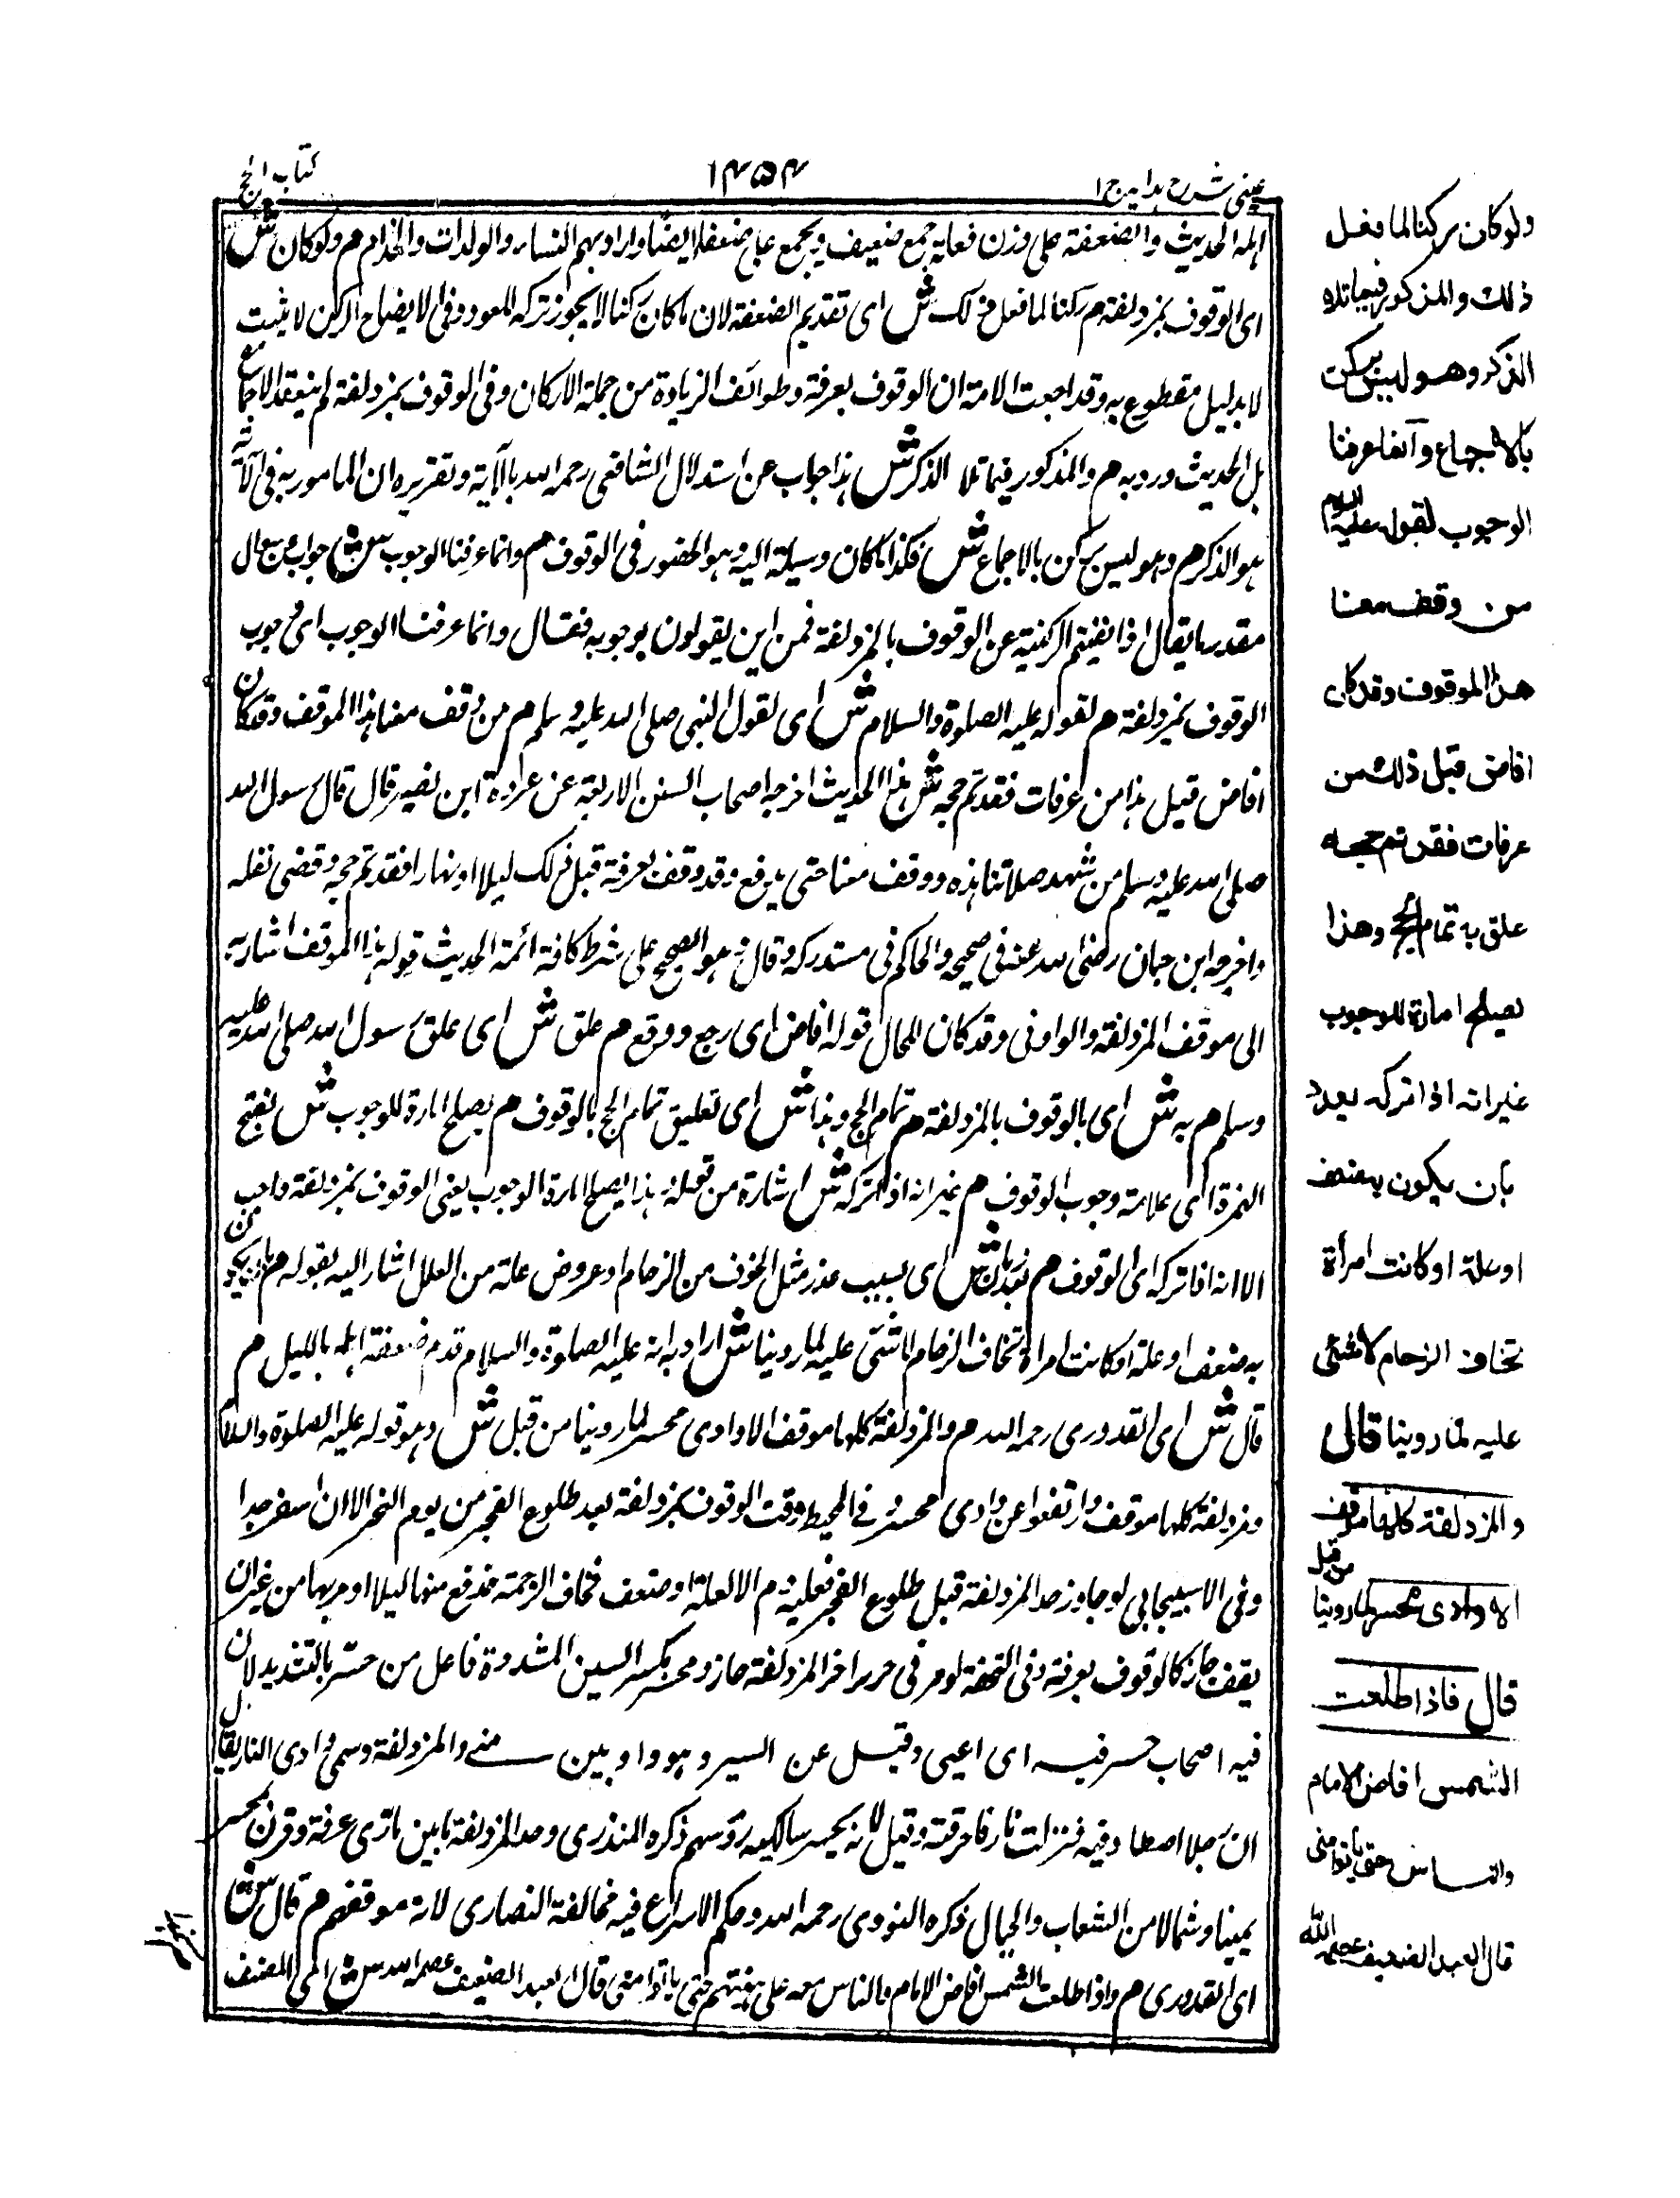 عینی شرح ہدایہ ج ۱
۱۴۵۴
کتاب الحج
اہلہ الحدیث والضعفة علی وزن فعلة جمع ضعیف ویجمع علی ضعفاء ایضا واراد بہم النساء والولدان والخدام م ولو کان ش
ای الوقوف بمزدلفة م رکنا لما فعل ذلک ش ای تقدیم الضعفة لان ما کان رکنا لا یجوز ترکہ للعذر وفی الایضاح الرکن لا یثبت
لا بدلیل مقطوع بہ وقد اجمعت الامة ان الوقوف بعرفة وطواف الزیارة من جملة الارکان وفی الوقوف بمزدلفة لم ینعقد الاجماع
بل الحدیث ورد بہ م والمذکور فیما تلا الذکر ش ہذا جواب عن استدلال الشافعی رحمہ اللہ بالآیة وتقریرہ ان المامور بہ فی الآیة
ہو الذکر م وہو لیس برکن بالاجماع ش فکذا ما کان وسیلة الیہ وہو الحضور فی الوقوف م وانما عرفنا الوجوب ش جواب عن سوال
مقدر بما یقال اذا نفیتم الرکنیة عن الوقوف بالمزدلفة فمن این یقولون بوجوبہ فقال وانما عرفنا الوجوب ای وجوب
الوقوف بمزدلفة م لقولہ علیہ الصلوة والسلام ش ای لقول النبی صلی اللہ علیہ وسلم م من وقف معنا ہذا الموقف وقد کان
افاض قبل ہذا من عرفات فقد تم حجہ ش ہذا الحدیث اخرجہ اصحاب السنن الاربعة عن عروة ابن مضرس قال قال رسول اللہ
صلی اللہ علیہ وسلم من شہد صلاتنا ہذہ ووقف معنا حتی یدفع وقد وقف بعرفة قبل ذلک لیلا او نہارا فقد تم حجہ وقضی تفثہ
واخرجہ ابن حبان رضی اللہ عنہ فی صحیحہ والحاکم فی مستدرکہ وقال ہو الصحیح علی شرط کافة ائمة الحدیث قولہ ہذا الموقف اشار بہ
الی موقف المزدلفة والواو فی وقد کان للحال قولہ افاض ای رجع ووقع م علق ش ای علق رسول اللہ صلی اللہ علیہ
وسلم م بہ ش ای بالوقوف بالمزدلفة م تمام الحج وہذا ش ای تعلیق تمام الحج بالوقوف م یصلح امارة للوجوب ش بفتح
الہمزة ای علامة وجوب الوقوف م غیر انہ اذا ترکہ ش اشارة من قولہ ہذا یصلح امارة الوجوب یعنی الوقوف بمزدلفة واجب
الا انہ اذا ترکہ ای الوقوف م بعذر ش ای بسبب عذر مثل الخوف من الزحام او عروض علة من العلل اشار الیہ بقولہ م بان یکون
بہ ضعف او علة او کانت امراة تخاف الزحام لا شئ علیہ لما روینا ش اراد بہ انہ علیہ الصلوة والسلام قدم ضعفة اہلہ باللیل م
قال ش ای القدوری رحمہ اللہ م والمزدلفة کلہا موقف الا وادی محسر لما روینا من قبل ش وہو قولہ علیہ الصلوة والسلام
ومزدلفة کلہا موقف وارتفعوا عن وادی محسر وفی المحیط وقت الوقوف بمزدلفة بعد طلوع الفجر من یوم النحر الا ان اسفر جدا
وفی الاسبیجابی لو جاوز حد المزدلفة قبل طلوع الفجر فعلیہ دم الا لعلة او ضعف فخاف الزحمة فدفع منہا لیلا او مر بہا من غیر ان
یقف جاز کالوقوف بعرفة وفی التحفة لو مر فی جزء من اجزاء المزدلفة جاز ومحسر بکسر السین المشددة فاعل من حسر بالتشدید لان
فیہ اصحاب حسر فیہ ای اعیی وقیل عن السیر وہو واد بین منی والمزدلفة وسمی وادی النار یقال
ان رجلا اصطاد فیہ فنزلت نار فاحرقتہ وقیل لانہ یحسر سالکیہ رؤسہم ذکرہ المنذری وحد المزدلفة ما بین مازمی عرفة وقرن محسر
یمینا وشمالا من الشعاب والجبال ذکرہ النووی رحمہ اللہ وحکم الاسراع فیہ مخالفة النصاری لانہ موقفہم م قال ش
ای القدوری م واذا طلعت الشمس افاض الامام والناس معہ علی ہینتہم حتی یاتوا منی قال العبد الضعیف عصمہ اللہ ش ای المصنف
ولو کان رکنا لما فعل
ذلك والمذکور فیما تلاہ
الذکر وهو لیس برکن
بالاجماع وانما عرفنا
الوجوب لقوله علیه السلام
من وقف معنا
هذا الموقوف وقد کان
افاض قبل ذلك من
عرفات فقد تم حجه
علق به تمام الحج وهذا
یصلح امارة للوجوب
غیر انه اذا ترکه بعذر
بان یکون به ضعف
او علة او کانت امرأة
تخاف الزحام لا شئ
علیه لما روینا قال
والمزدلفة کلها موقف
الا وادی محسر لما روینا من قبل
قال فاذا طلعت
الشمس افاض الامام
والناس حتی یاتوا منی
قال العبد الضعیف عصمه الله